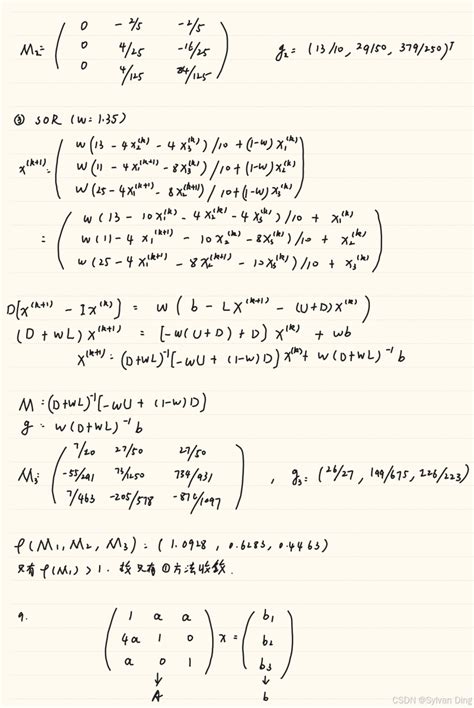 M₂= ( 0 -2/5 -2/5
0 4/25 -16/25
0 4/125 84/125 ) g₂= (13/10, 29/50, 379/250)ᵀ
③ SOR (W=1.35)
x⁽ᵏ⁺¹⁾= ( w(13 - 4x₂⁽ᵏ⁾ - 4x₃⁽ᵏ⁾)/10 + (1-w)x₁⁽ᵏ⁾
w(11 - 4x₁⁽ᵏ⁺¹⁾ - 8x₃⁽ᵏ⁾)/10 + (1-w)x₂⁽ᵏ⁾
w(25 - 4x₁⁽ᵏ⁺¹⁾ - 8x₂⁽ᵏ⁺¹⁾)/10 + (1-w)x₃⁽ᵏ⁾ )
= ( w(13 - 10x₁⁽ᵏ⁾ - 4x₂⁽ᵏ⁾ - 4x₃⁽ᵏ⁾)/10 + x₁⁽ᵏ⁾
w(11 - 4x₁⁽ᵏ⁺¹⁾ - 10x₂⁽ᵏ⁾ - 8x₃⁽ᵏ⁾)/10 + x₂⁽ᵏ⁾
w(25 - 4x₁⁽ᵏ⁺¹⁾ - 8x₂⁽ᵏ⁺¹⁾ - 10x₃⁽ᵏ⁾)/10 + x₃⁽ᵏ⁾ )
D[x⁽ᵏ⁺¹⁾ - Ix⁽ᵏ⁾] = w(b - Lx⁽ᵏ⁺¹⁾ - (U+D)x⁽ᵏ⁾)
(D+WL)x⁽ᵏ⁺¹⁾ = [-w(U+D)+D]x⁽ᵏ⁾ + wb
x⁽ᵏ⁺¹⁾=(D+WL)⁻¹[-wU+(1-w)D]x⁽ᵏ⁾+w(D+WL)⁻¹b
M=(D+WL)⁻¹[-wU+(1-w)D]
g= w(D+WL)⁻¹b
M₃= ( 7/20 27/50 27/50
-55/291 /1250 734/931
7/463 -205/578 /1097 ) , g₃=(26/27, 199/675, 226/223)
ρ(M₁,M₂,M₃)=(1.0928, 0.6283, 0.4463)
只有ρ(M₁)>1. 故只有①方法收敛.
9. ( 1 a a
4a 1 0
a 0 1 ) x = ( b₁
b₂
b₃ )
↓ ↓
A b
CSDN @Sylvan Ding